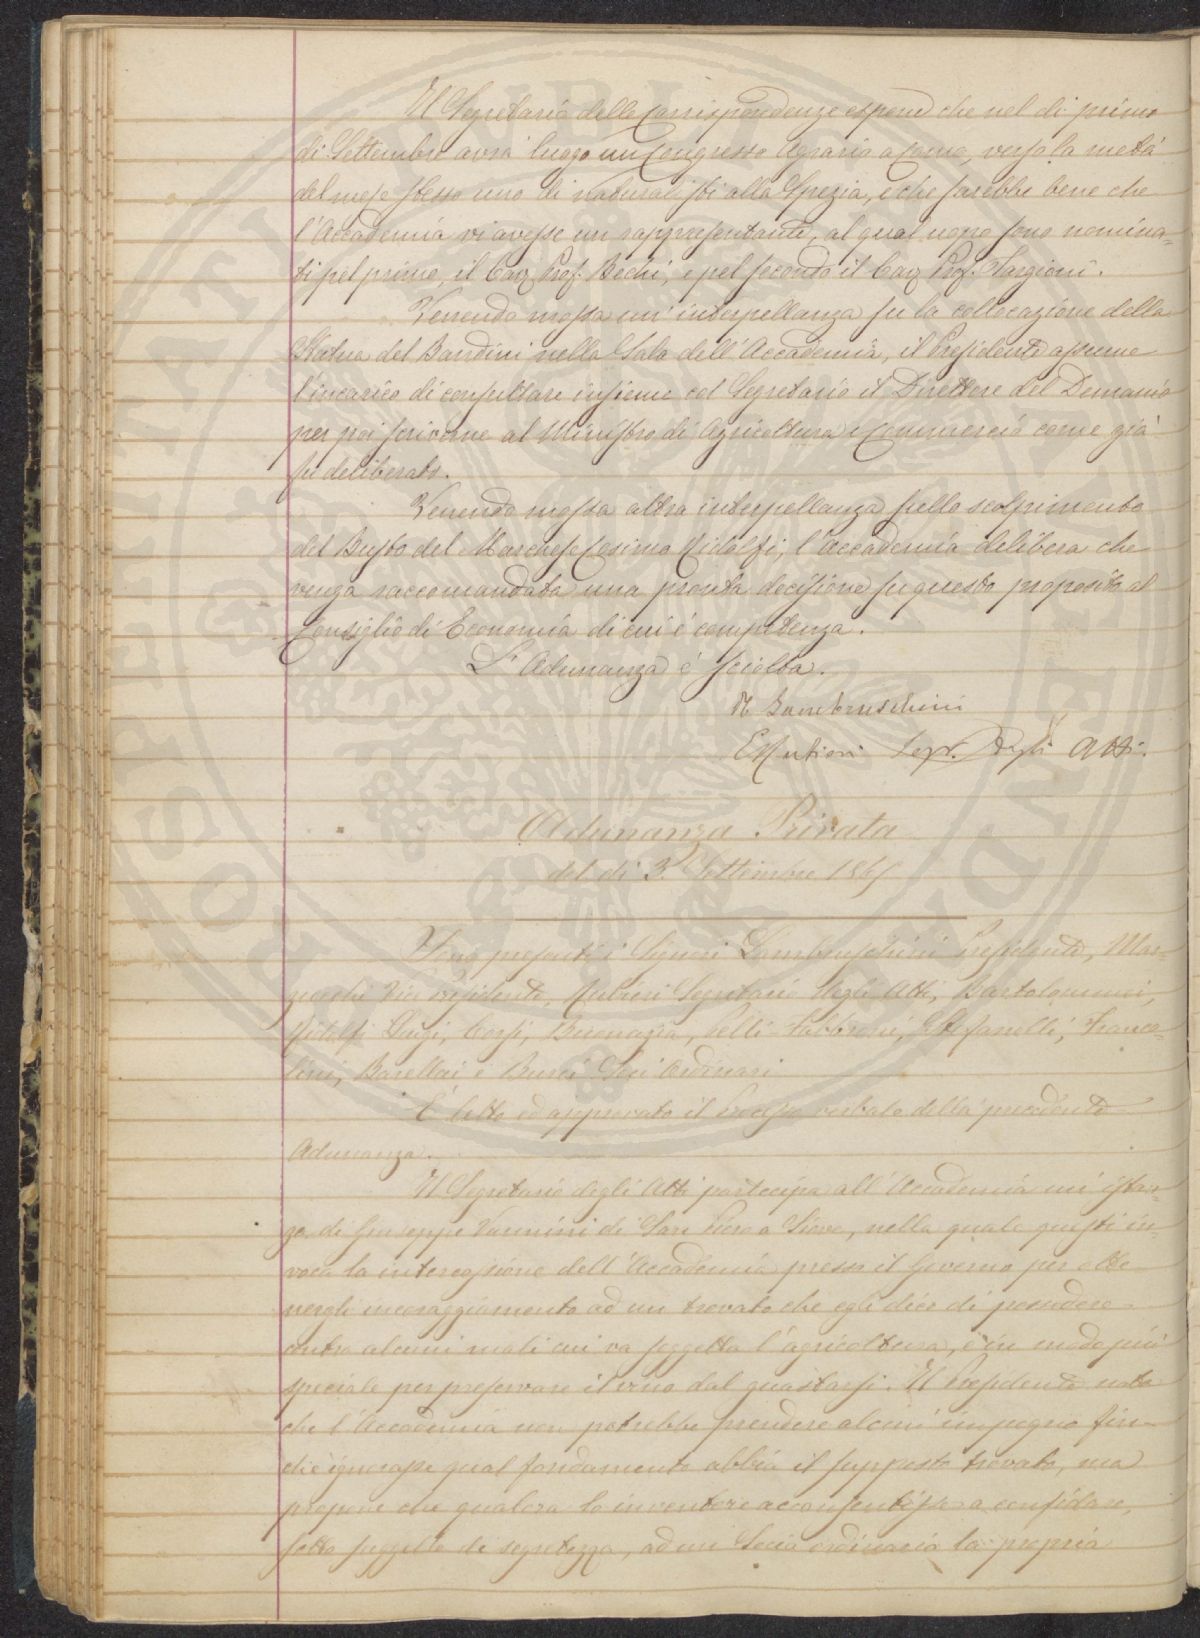 Il Segretario delle Corrispondenze espone che nel dì primo
di Settembre avrà luogo un Congresso Agrario a Como, verso la metà
del mese stesso uno di Naturalisti alla Spezia, e che sarebbe bene che
l'Accademia vi avesse un rappresentante, al qual uopo sono nomina=
ti pel primo, il Cav. Prof. Bechi, e pel secondo il Cav. Prof. Targioni.
Venendo mossa un'interpellanza su la collocazione della
Statua del Bandini nella Sala dell'Accademia, il Presidente assume
l'incarico di consultare insieme col Segretario il Direttore del Demanio
per poi scriverne al Ministro di Agricoltura e Commercio come già
fu deliberato.
Venendo mossa altra interpellanza sullo scolpimento
del Busto del Marchese Cosimo Ridolfi, l'Accademia delibera che
venga raccomandata una pronta decisione su questo proposito al
Consiglio di Economia di cui è competenza.
L'Adunanza è sciolta.
R Lambruschini
E Rubieri Segr. degli Atti.
Adunanza Privata
del dì 3. Settembre 1865
Sono presenti i Signori Lambruschini Presidente, Mar=
Vice presidente, Rubieri Segretario degli Atti, Bartolommei,
Ridolfi Luigi, Corsi, Buonazia, Pelli Fabbroni, Stefanelli, France=
lini, Barellai e Burci Soci Ordinari
È letto ed approvato il Processo verbale della precedente
Adunanza.
Il Segretario degli Atti partecipa all'Accademia un'istan=
za di Giuseppe Vannini di San Piero a Sieve, nella quale questi in=
voca la intercessione dell'Accademia presso il Governo per otte=
nergli incoraggiamento ad un trovato che egli dice di possedere
contro alcuni mali cui va soggetta l'agricoltura, e in modo più
speciale per preservare il vino dal guastarsi. Il Presidente nota
che l'Accademia non potrebbe prendere alcun impegno fin=
chè ignorasse qual fondamento abbia il supposto trovato, ma
propone che qualora lo inventore acconsentisse a confidare,
sotto suggello di segretezza, ad un Socio ordinario la propria